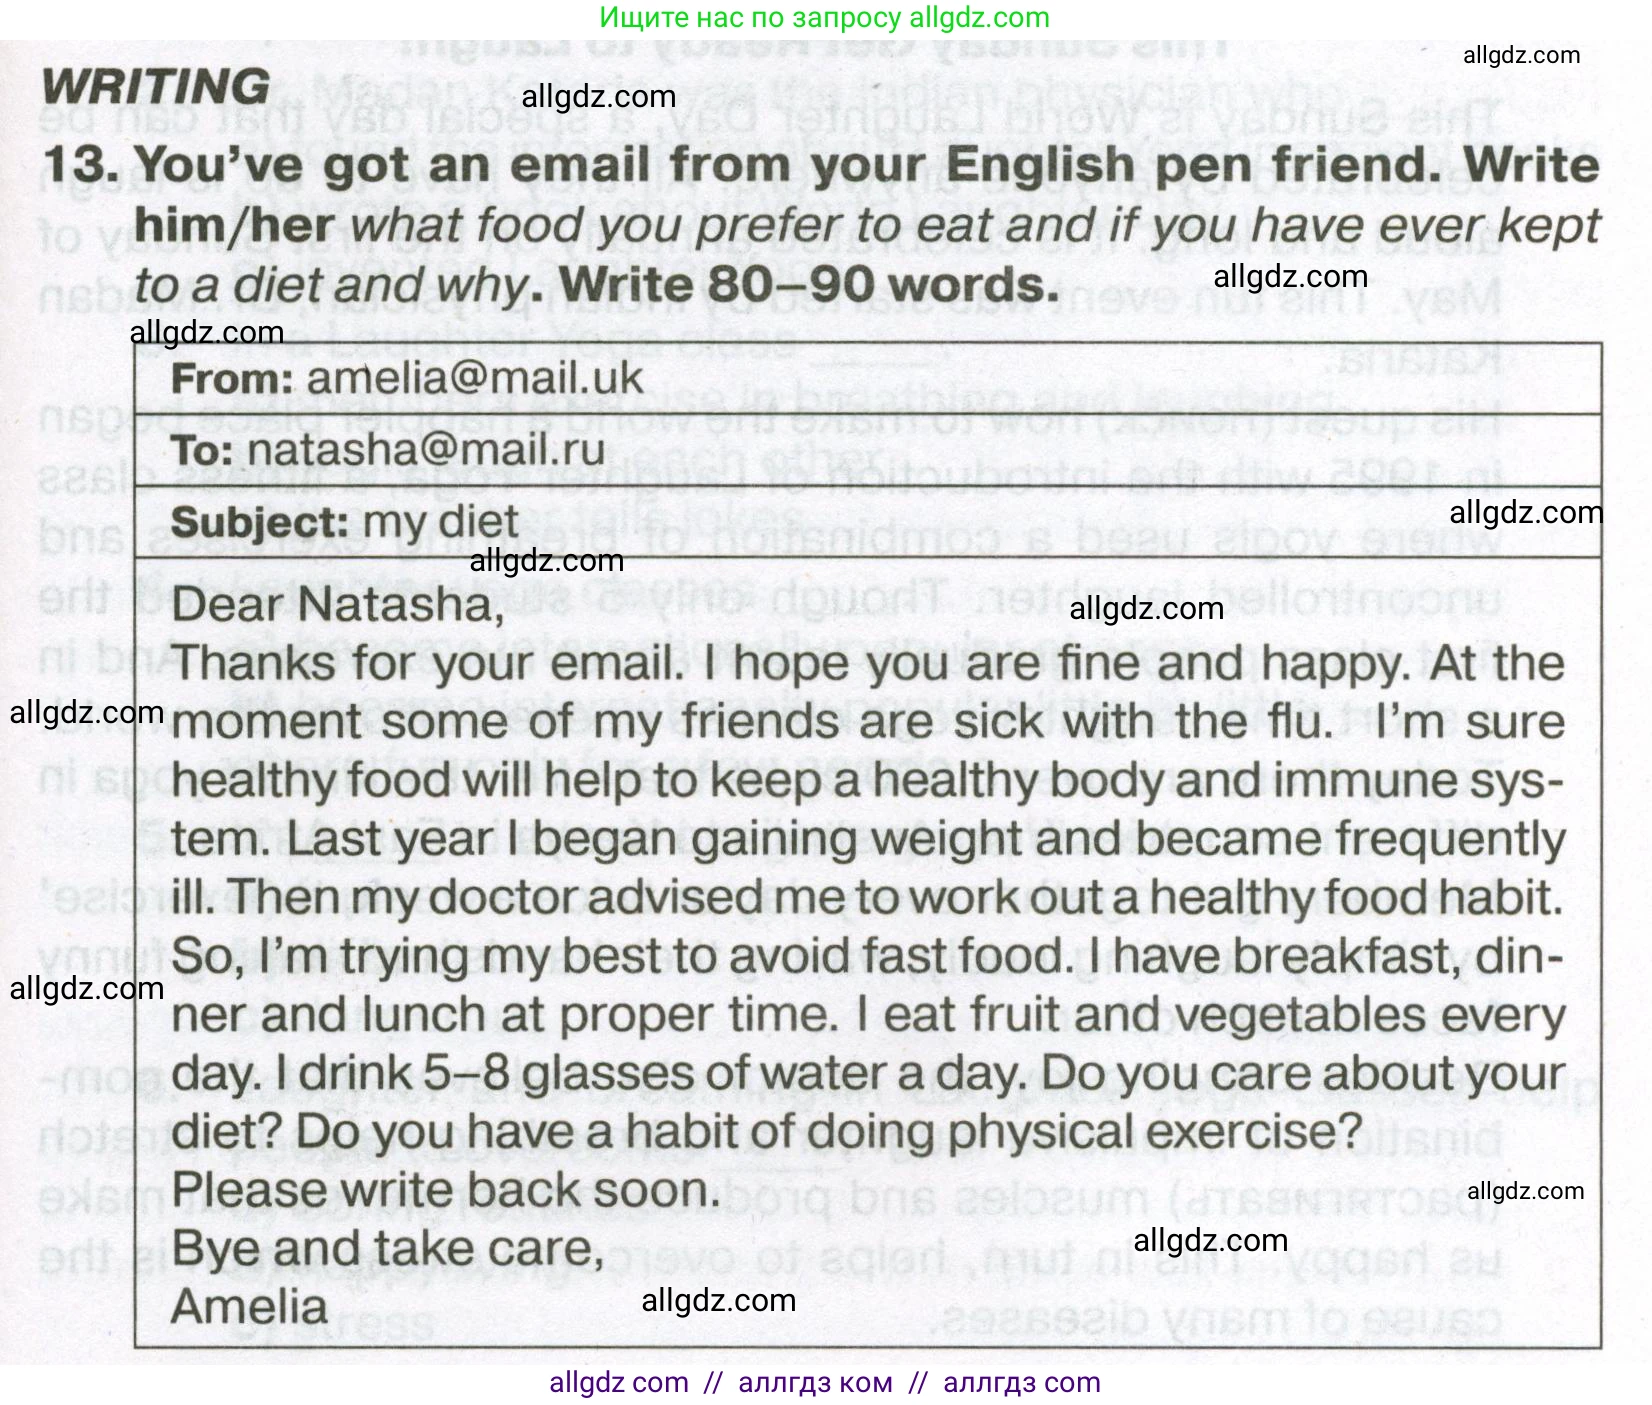 Ищите нас по запросу allgdz.com
allgdz.com
WRITING
allgdz.com
13. You've got an email from your English pen friend. Write
him/her what food you prefer to eat and if you have ever kept
to a diet and why. Write 80–90 words.
allgdz.com
allgdz.com
From: amelia@mail.uk
To: natasha@mail.ru
Subject: my diet
allgdz.com
allgdz.com
Dear Natasha,
allgdz.com
Thanks for your email. I hope you are fine and happy. At the
allgdz.com
moment some of my friends are sick with the flu. I'm sure
healthy food will help to keep a healthy body and immune sys-
tem. Last year I began gaining weight and became frequently
ill. Then my doctor advised me to work out a healthy food habit.
So, I'm trying my best to avoid fast food. I have breakfast, din-
allgdz.com
ner and lunch at proper time. I eat fruit and vegetables every
day. I drink 5–8 glasses of water a day. Do you care about your
diet? Do you have a habit of doing physical exercise?
Please write back soon.
allgdz.com
Bye and take care,
allgdz.com
Amelia
allgdz.com
allgdz com // аллгдз ком // аллгдз com